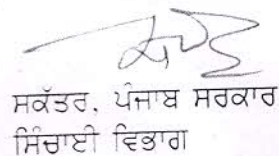 ਸਕੱਤਰ, ਪੰਜਾਬ ਸਰਕਾਰ
ਸਿੰਚਾਈ ਵਿਭਾਗ